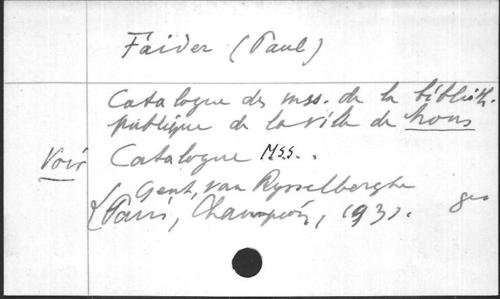 Faider (Paul)
Catalogue des mss. de la biblioth.
publique de la ville de Mons
Voir Catalogue Mss..
Gent, van Rysselberghe
(Paris, Champion, 1931.